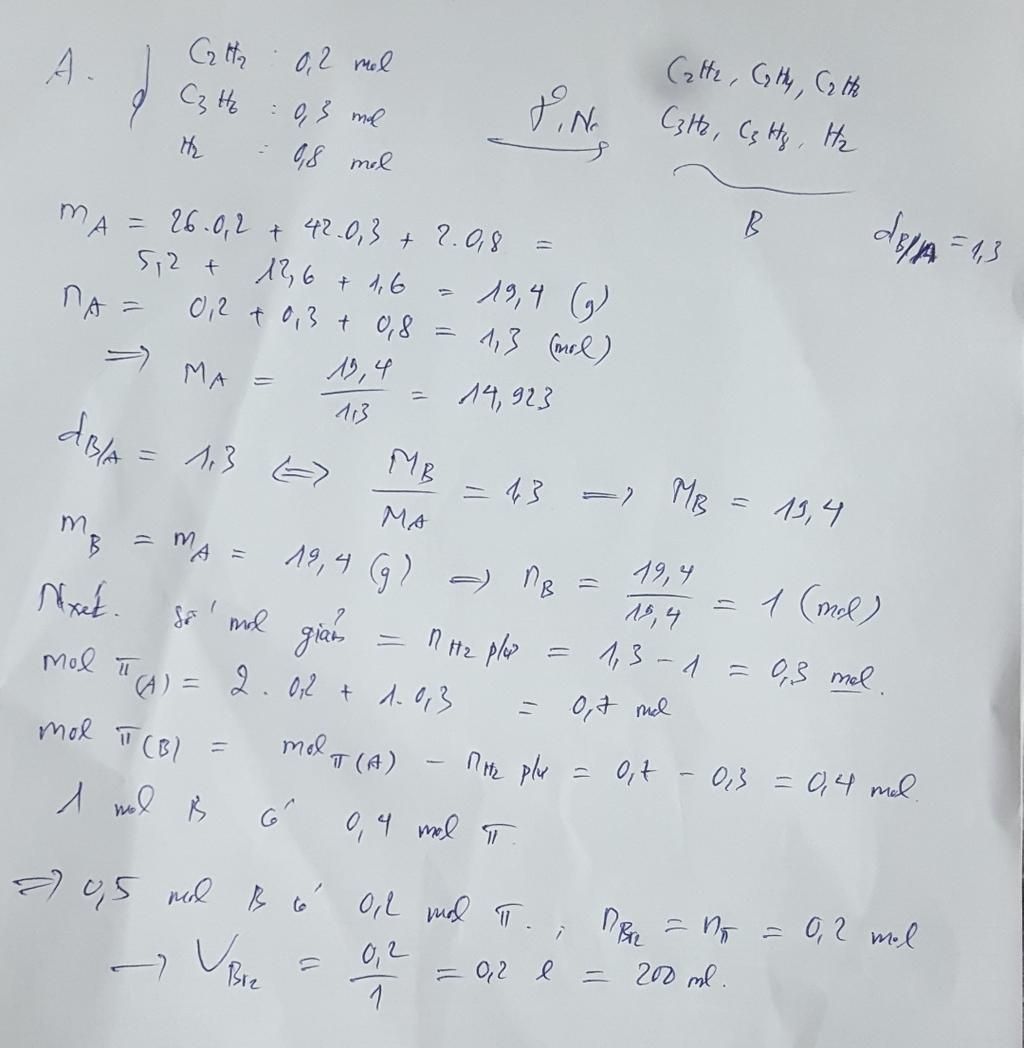 A. C2H2 : 0,2 mol
C3H6 : 0,3 mol
H2 : 0,8 mol
t°, Ni
C2H2, C2H4, C2H6
C3H6, C3H8, H2
B
dB/A = 1,3
mA = 26.0,2 + 42.0,3 + 2.0,8 =
5,2 + 12,6 + 1,6 = 19,4 (g)
nA = 0,2 + 0,3 + 0,8 = 1,3 (mol)
=> MA = 19,4/1,3 = 14,923
dB/A = 1,3 <=> MB/MA = 1,3 => MB = 19,4
mB = mA = 19,4 (g) => nB = 19,4/19,4 = 1 (mol)
Nxét. Số mol giảm = nH2 pứ = 1,3 - 1 = 0,3 mol.
mol π(A) = 2. 0,2 + 1. 0,3 = 0,7 mol
mol π(B) = mol π(A) - nH2 pứ = 0,7 - 0,3 = 0,4 mol.
1 mol B có 0,4 mol π.
=> 0,5 mol B có 0,2 mol π. ; nBr2 = nπ = 0,2 mol
→ VBr2 = 0,2/1 = 0,2 l = 200 ml.